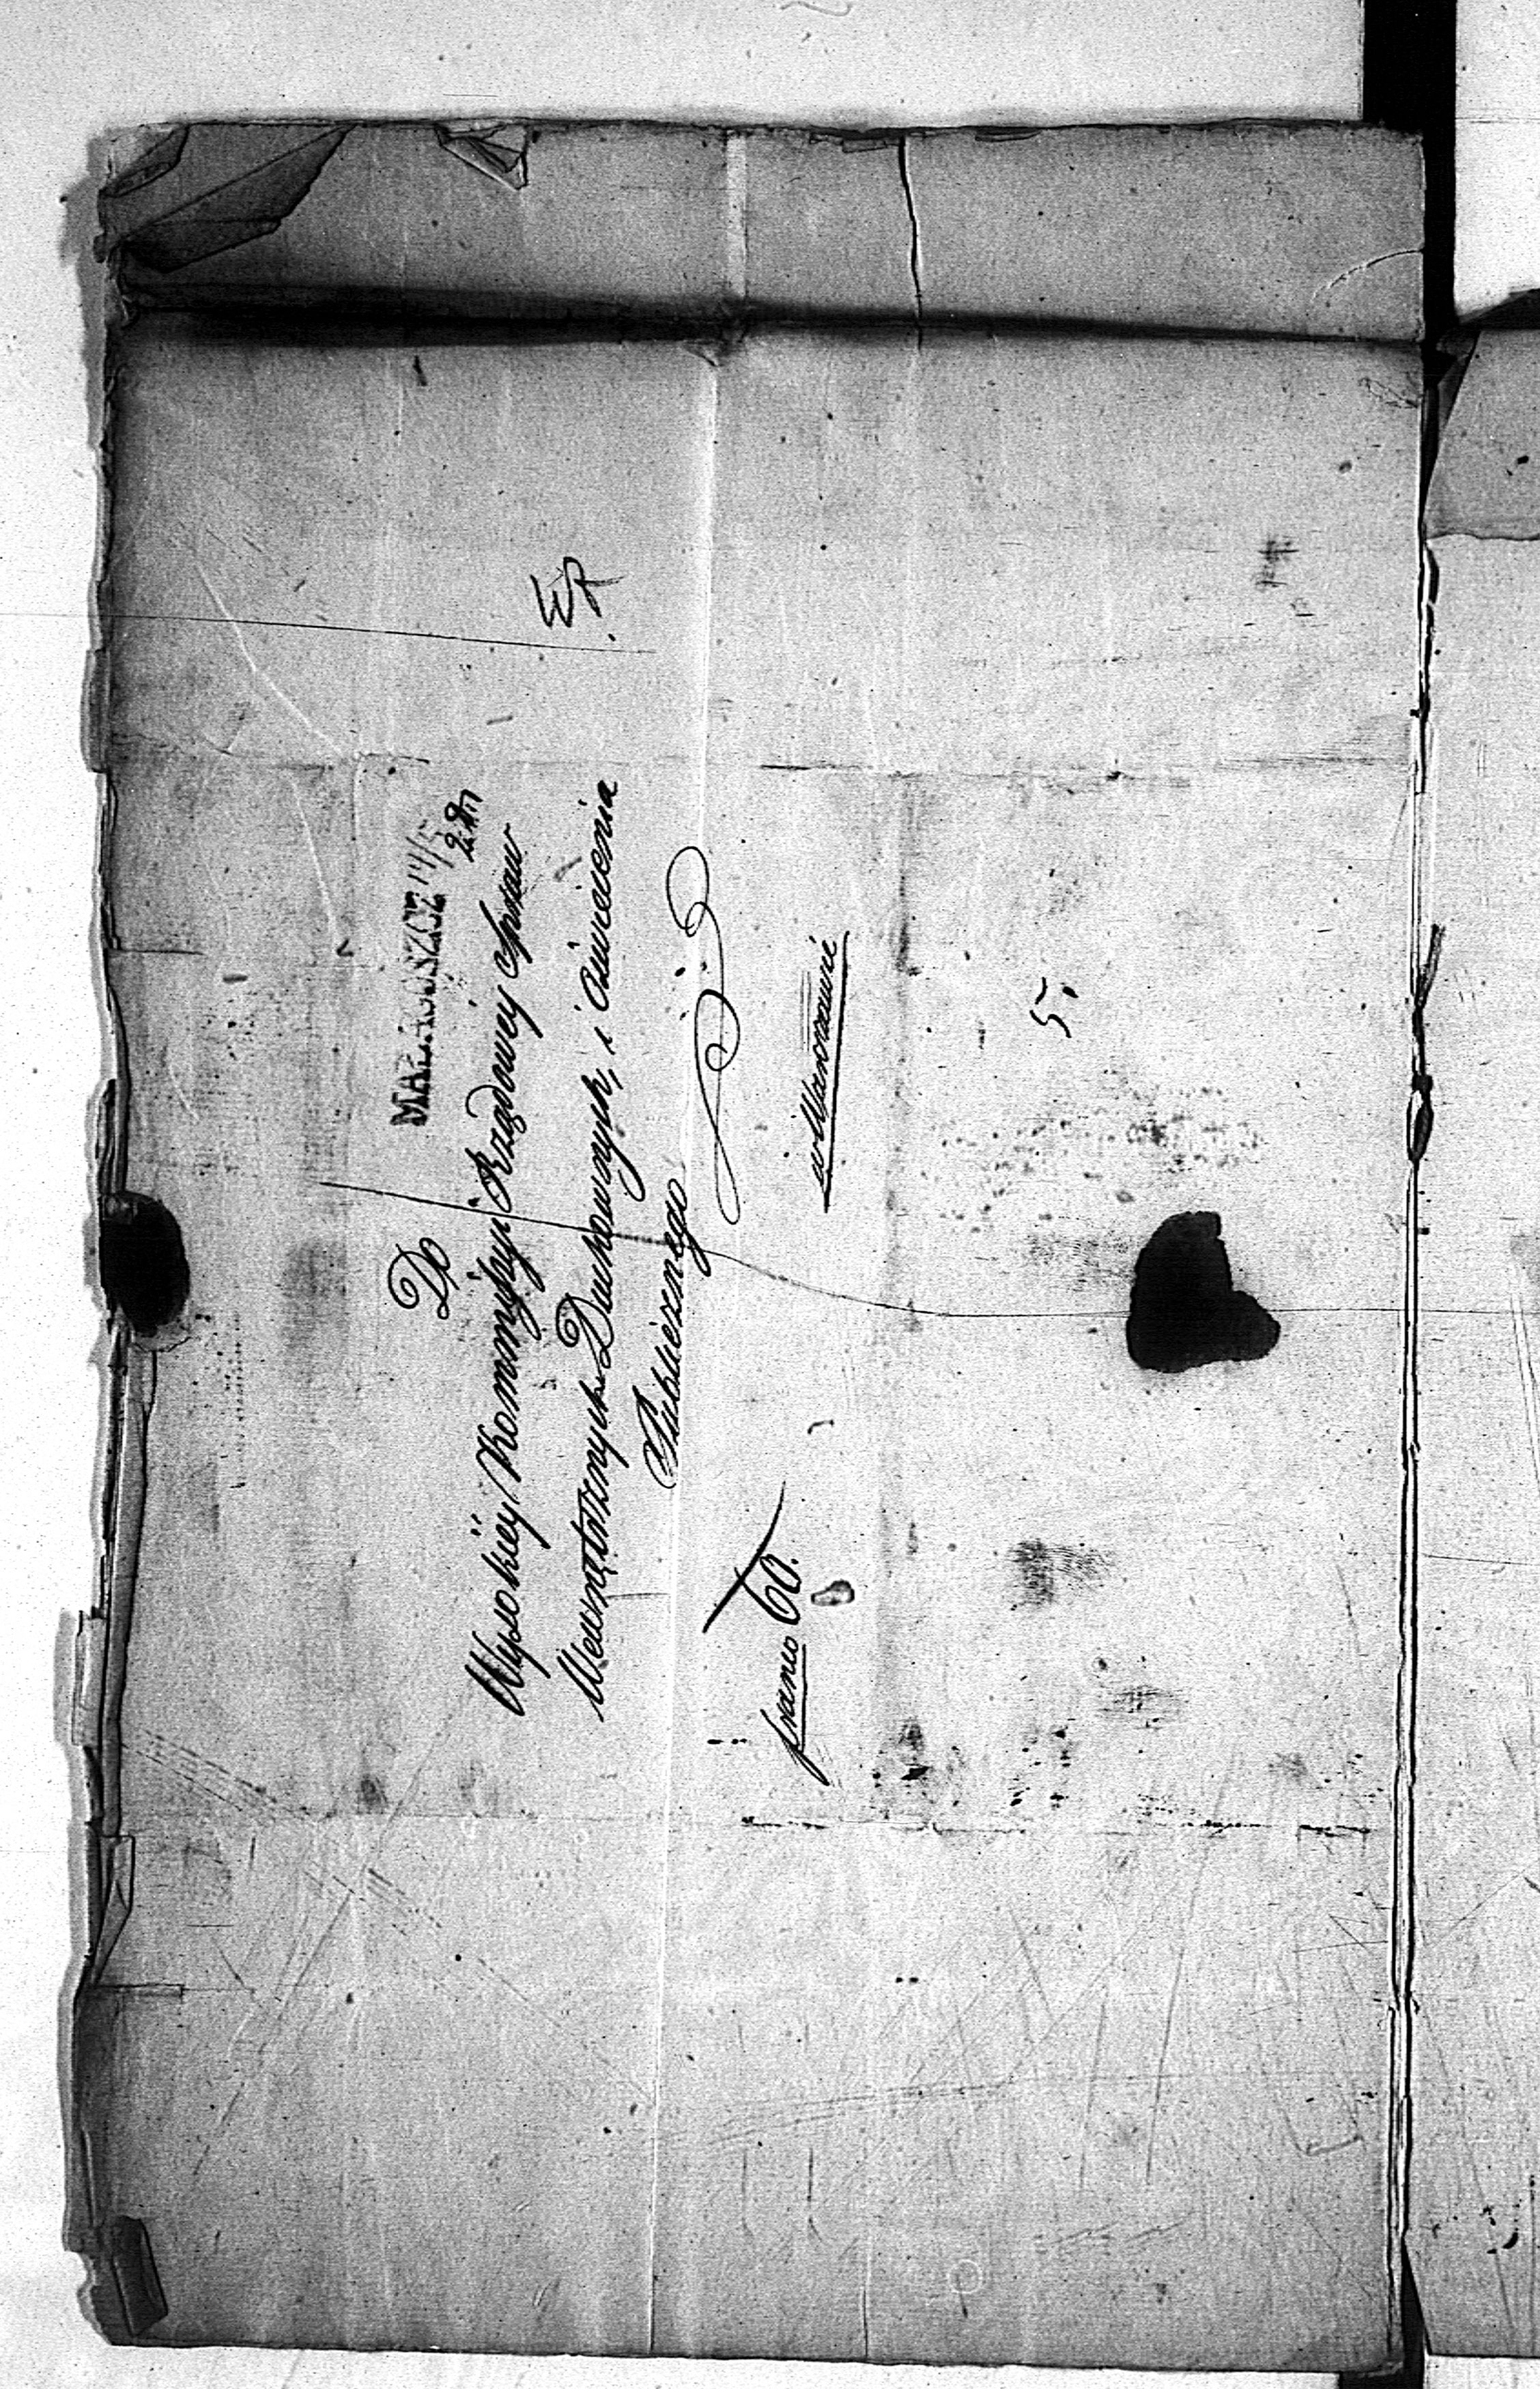 MAŁOGOSZCZ 14/5
Do
Wysokiey Kommissyi Rządowey Spraw
Wewnętrznych Duchownych, i Oświecenia
Publicznego
w Warszawie
franco 60.
5.